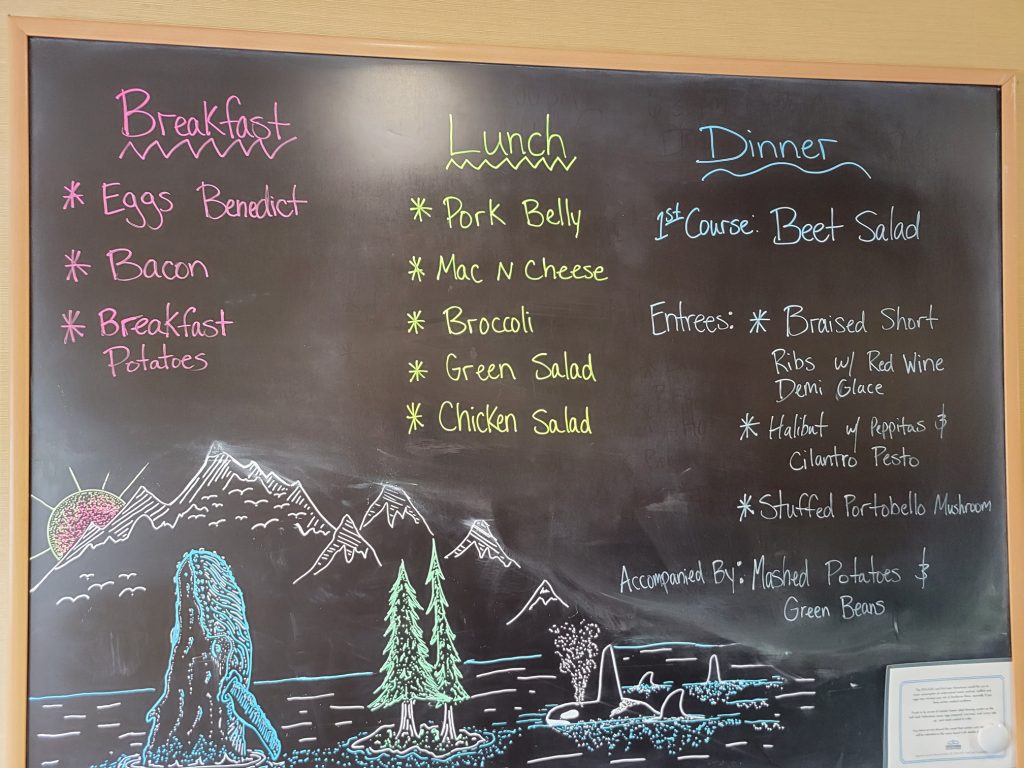 Breakfast
* Eggs Benedict
* Bacon
* Breakfast
Potatoes
Lunch
* Pork Belly
* Mac N Cheese
* Broccoli
* Green Salad
* Chicken Salad
Dinner
1st Course: Beet Salad
Entrees: * Braised Short
Ribs w/ Red Wine
Demi Glace
* Halibut w/ Peppitas &
Cilantro Pesto
* Stuffed Portobello Mushroom
Accompanied By: Mashed Potatoes &
Green Beans